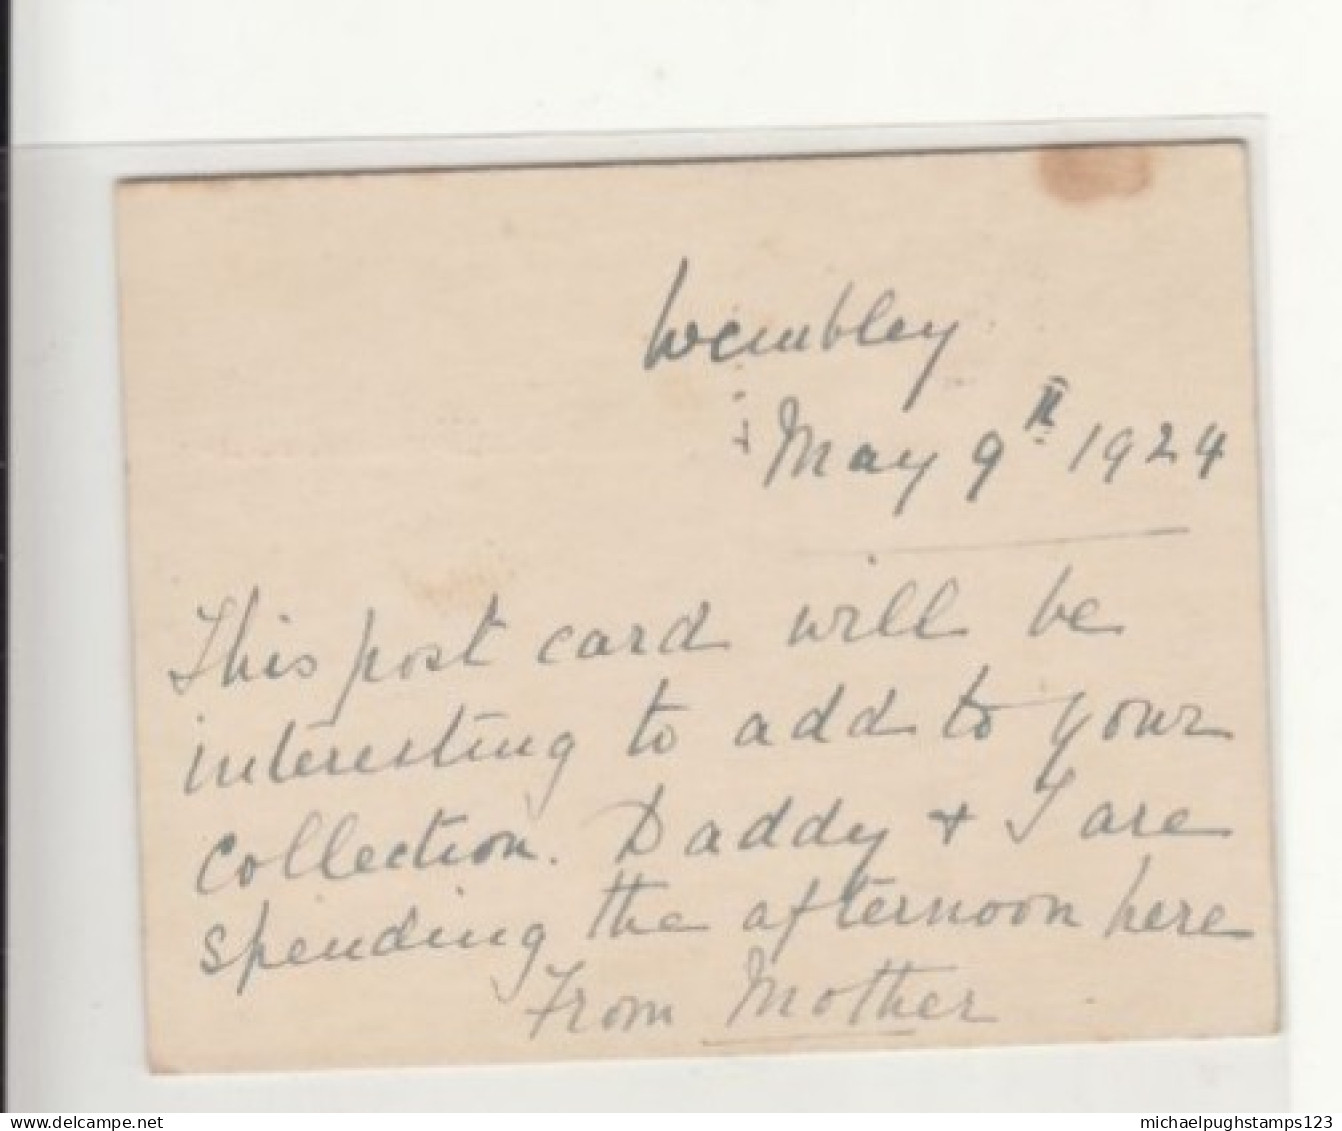 Wembley
May 9th 1924
This post card will be
interesting to add to your
collection. Daddy + I are
spending the afternoon here
From Mother
www.delcampe.net
michaelpughstamps123